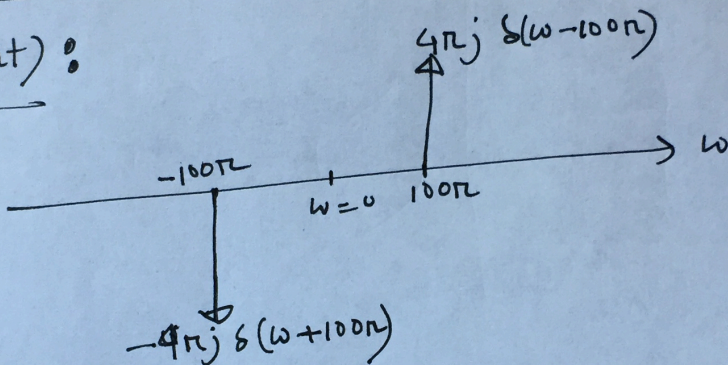 t) :
4πj δ(ω-100π)
ω
-100π
ω=0
100π
-4πj δ(ω+100π)